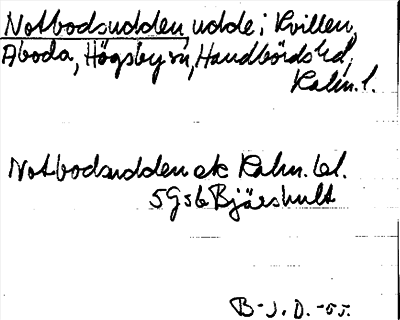 Notbodsudden, udde i Kvillen,
Aboda, Högsby sn, Handbörds hd,
Kalm. l.
Notbodsudden ek Kalm. bl.
5956 Bjäeshult
B-J. D. -55.